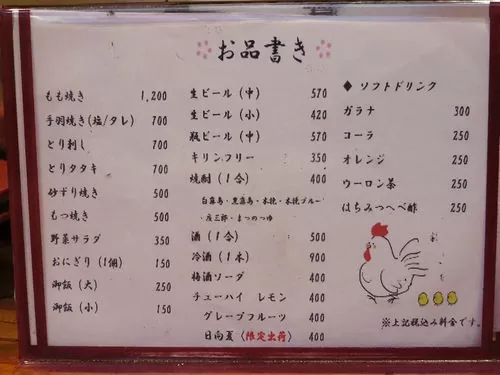 お品書き
もも焼き 1,200
手羽焼き(塩/タレ) 700
とり刺し 700
とりタタキ 700
砂ずり焼き 500
もつ焼き 500
野菜サラダ 350
おにぎり(1個) 150
御飯(大) 250
御飯(小) 150
生ビール(中) 570
生ビール(小) 420
瓶ビール(中) 570
キリンフリー 350
焼酎(1合) 400
白霧島・黒霧島・木挽・木挽ブルー
・庄三郎・まつのつゆ
酒(1合) 500
冷酒(1本) 900
梅酒ソーダ 400
チューハイ レモン 400
グレープフルーツ 400
日向夏〈限定出荷〉 400
◆ ソフトドリンク
ガラナ 300
コーラ 250
オレンジ 250
ウーロン茶 250
はちみつへべ酢 250
※上記税込み料金です。